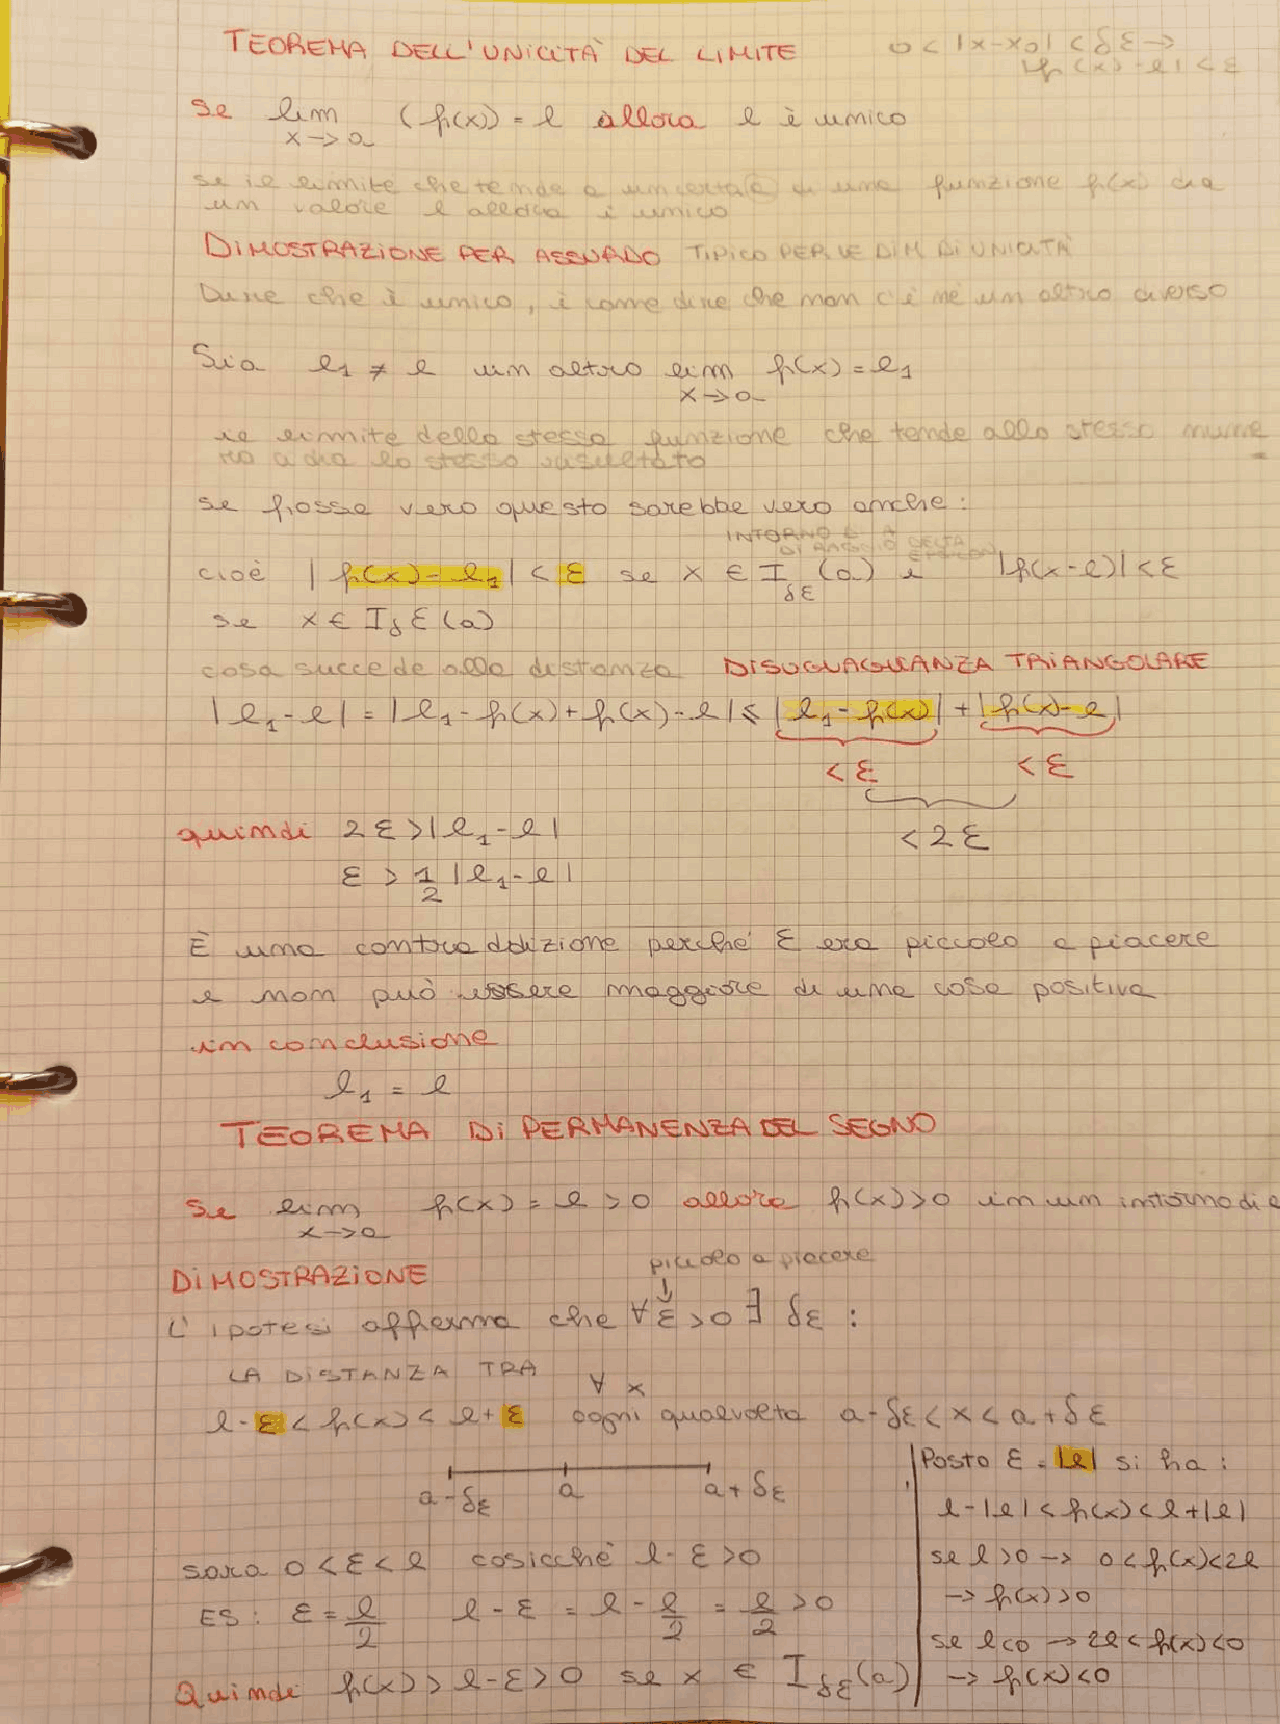 TEOREMA DELL'UNICITÀ DEL LIMITE
0 < |x-x0| < δε →
|f(x)-l| < ε
Se lim (f(x)) = l allora l è unico
x → a
se il limite che tende a un certa a di una funzione f(x) dia
un valore l allora è unico
DIMOSTRAZIONE PER ASSURDO TIPICO PER LE DIM DI UNICITÀ
Dire che è unico, è come dire che non c'è ne un altro diverso
Sia l₁ ≠ l un altro lim f(x) = l₁
x → a
il limite della stessa funzione che tende allo stesso nume
ro a dia lo stesso risultato
se fosse vero questo sarebbe vero anche:
INTORNO DI A
DI RAGGIO DELTA
EPSILON
cioè |f(x)-l₁| < ε se x ∈ I (a) e |f(x-l)| < ε
δε
se x ∈ Iδε(a)
cosa succede alla distanza DISUGUAGLIANZA TRIANGOLARE
|l₁-l| = |l₁-f(x)+f(x)-l| ≤ |l₁-f(x)| + |f(x)-l|
<ε <ε
quindi 2ε > |l₁-l|
<2ε
ε > 1/2 |l₁-l|
È una contraddizione perché ε era piccolo a piacere
e non può essere maggiore di una cosa positiva
in conclusione
l₁ = l
TEOREMA DI PERMANENZA DEL SEGNO
Se lim f(x) = l > 0 allora f(x) > 0 in un intorno di a
x → a
piccolo a piacere
DIMOSTRAZIONE
L'ipotesi afferma che ∀ε>0 ∃ δε :
LA DISTANZA TRA
∀ x
l-ε < f(x) < l+ε ogni qualvolta a-δε < x < a+δε
a-δε a a+δε
sarà 0<ε<l cosicché l-ε>0
ES: ε = l/2 l-ε = l - l/2 = l/2 > 0
Quindi f(x) > l-ε > 0 se x ∈ Iδε(a)
Posto ε = |l| si ha :
l-|l| < f(x) < l+|l|
se l>0 → 0<f(x)<2l
→ f(x)>0
se l<0 → 2l<f(x)<0
→ f(x)<0